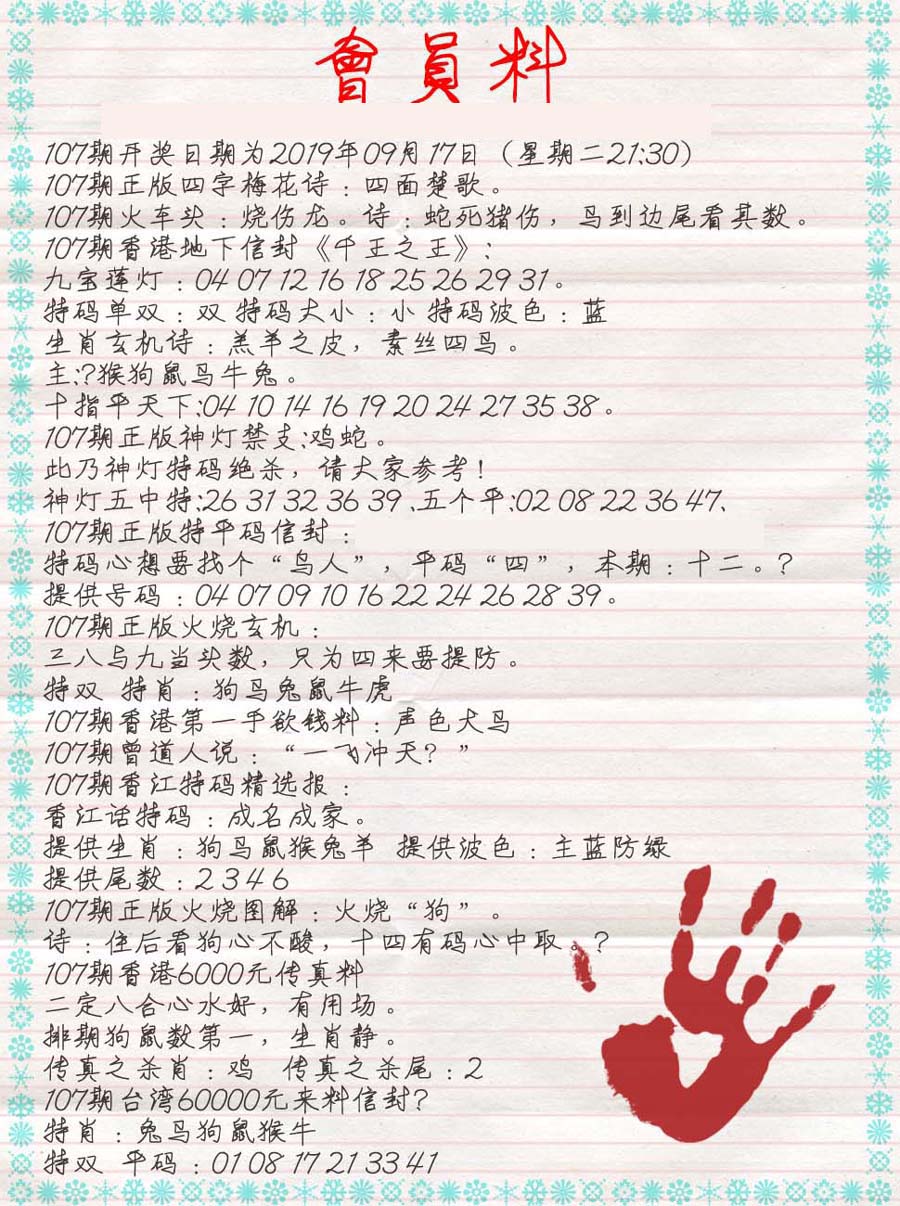 會員料
107期开奖日期为2019年09月17日（星期二21:30）
107期正版四字梅花诗：四面楚歌。
107期火车头：烧伤龙。诗：蛇死猪伤，马到边尾看其数。
107期香港地下信封《千王之王》：
九宝莲灯：04 07 12 16 18 25 26 29 31。
特码单双：双 特码大小：小 特码波色：蓝
生肖玄机诗：羔羊之皮，素丝四马。
主:?猴狗鼠马牛兔。
十指平天下:04 10 14 16 19 20 24 27 35 38。
107期正版神灯禁支:鸡蛇。
此乃神灯特码绝杀，请大家参考！
神灯五中特:26 31 32 36 39 、五个平:02 08 22 36 47、
107期正版特平码信封：
特码心想要找个“鸟人”，平码“四”，本期：十二。?
提供号码：04 07 09 10 16 22 24 26 28 39。
107期正版火烧玄机：
三八与九当头数，只为四来要提防。
特双 特肖：狗马兔鼠牛虎
107期香港第一手欲钱料：声色犬马
107期曾道人说：“一飞冲天？”
107期香江特码精选报：
香江话特码：成名成家。
提供生肖：狗马鼠猴兔羊 提供波色：主蓝防绿
提供尾数：2 3 4 6
107期正版火烧图解：火烧“狗”。
诗：住后看狗心不酸，十四有码心中取。?
107期香港6000元传真料
二定八合心水好，有用场。
排期狗鼠数第一，生肖静。
传真之杀肖：鸡 传真之杀尾：2
107期台湾60000元来料信封?
特肖：兔马狗鼠猴牛
特双 平码：01 08 17 21 33 41